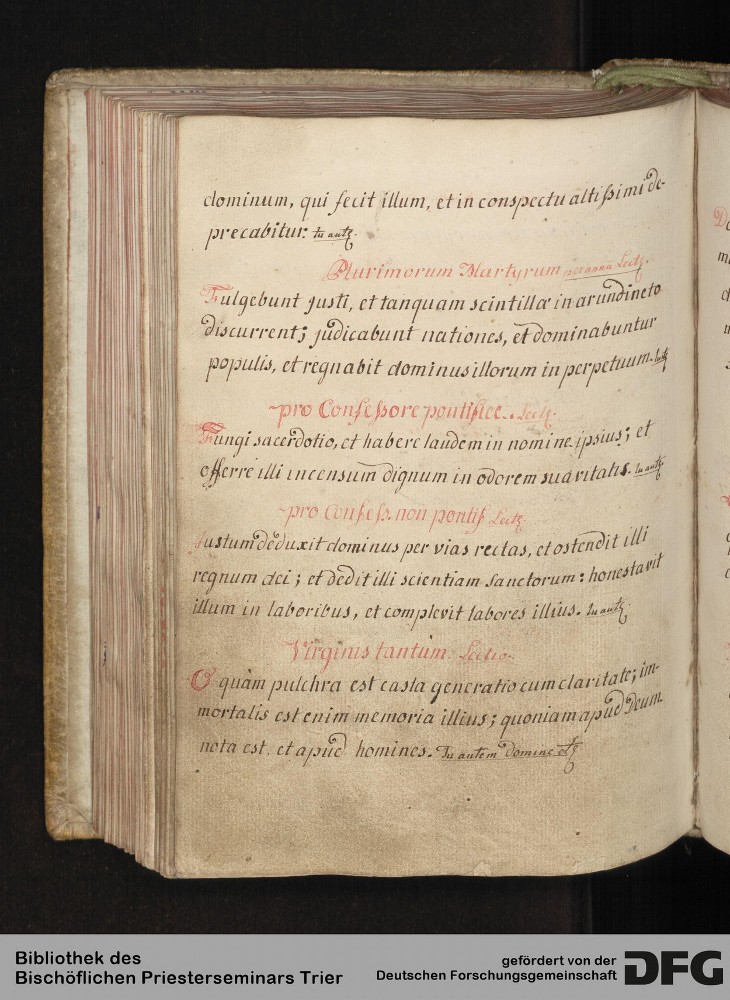 dominum, qui fecit illum, et in conspectu altissimi de-
precabitur: tu autz.
Plurimorum Martyrum per annũ Lectz.
Fulgebunt justi, et tanquam scintillæ in arundineto
discurrent; judicabunt nationes, et dominabuntur
populis, et regnabit dominus illorum in perpetuum.
pro Confessore pontifice. Lectz.
Fungi sacerdotio, et habere laudem in nomine ipsius; et
offerre illi incensum dignum in odorem suavitatis. tu autz.
pro Confess. non pontif Lectz.
Justum deduxit dominus per vias rectas, et ostendit illi
regnum dei; et dedit illi scientiam sanctorum: honestavit
illum in laboribus, et complevit labores illius. tu autz.
Virginis tantum. Lectio.
O quàm pulchra est casta generatio cum claritate; im-
mortalis est enim memoria illius; quoniam apud Deum
nota est, et apud homines. Tu autem Domine etz
Bibliothek des
Bischöflichen Priesterseminars Trier
gefördert von der
Deutschen Forschungsgemeinschaft
DFG